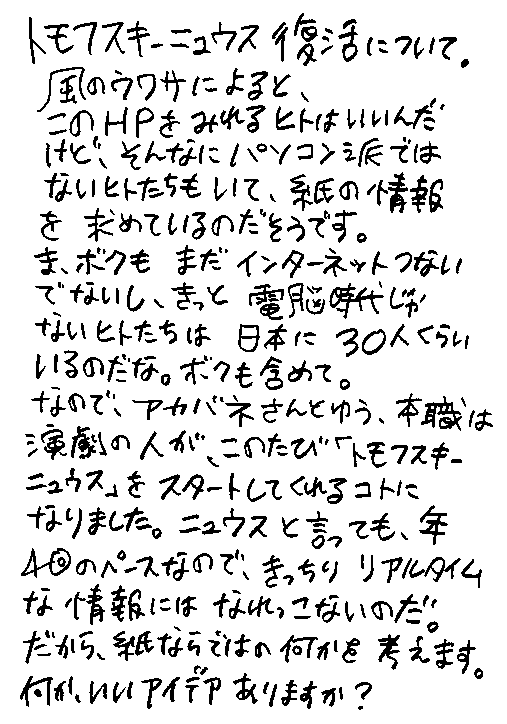 トモフスキーニュウス 復活について。
風のウワサによると、
このHPを みれるヒトはいいんだ
けど、そんなにパソコン派では
ないヒトたちもいて、紙の情報
を 求めているのだそうです。
ま、ボクも まだ インターネットつない
でないし、きっと 電脳時代じゃ
ないヒトたちは 日本に 30人くらい
いるのだな。ボクも含めて。
なので、アカバネさんとゆう、本職は
演劇の人が、このたび「トモフスキー
ニュウス」を スタートしてくれるコトに
なりました。ニュウスと言っても、年
4回のペースなので、きっちり リアルタイム
な 情報には なれっこないのだ。
だから、紙ならではの何かを 考えます。
何か、いいアイデアありますか？